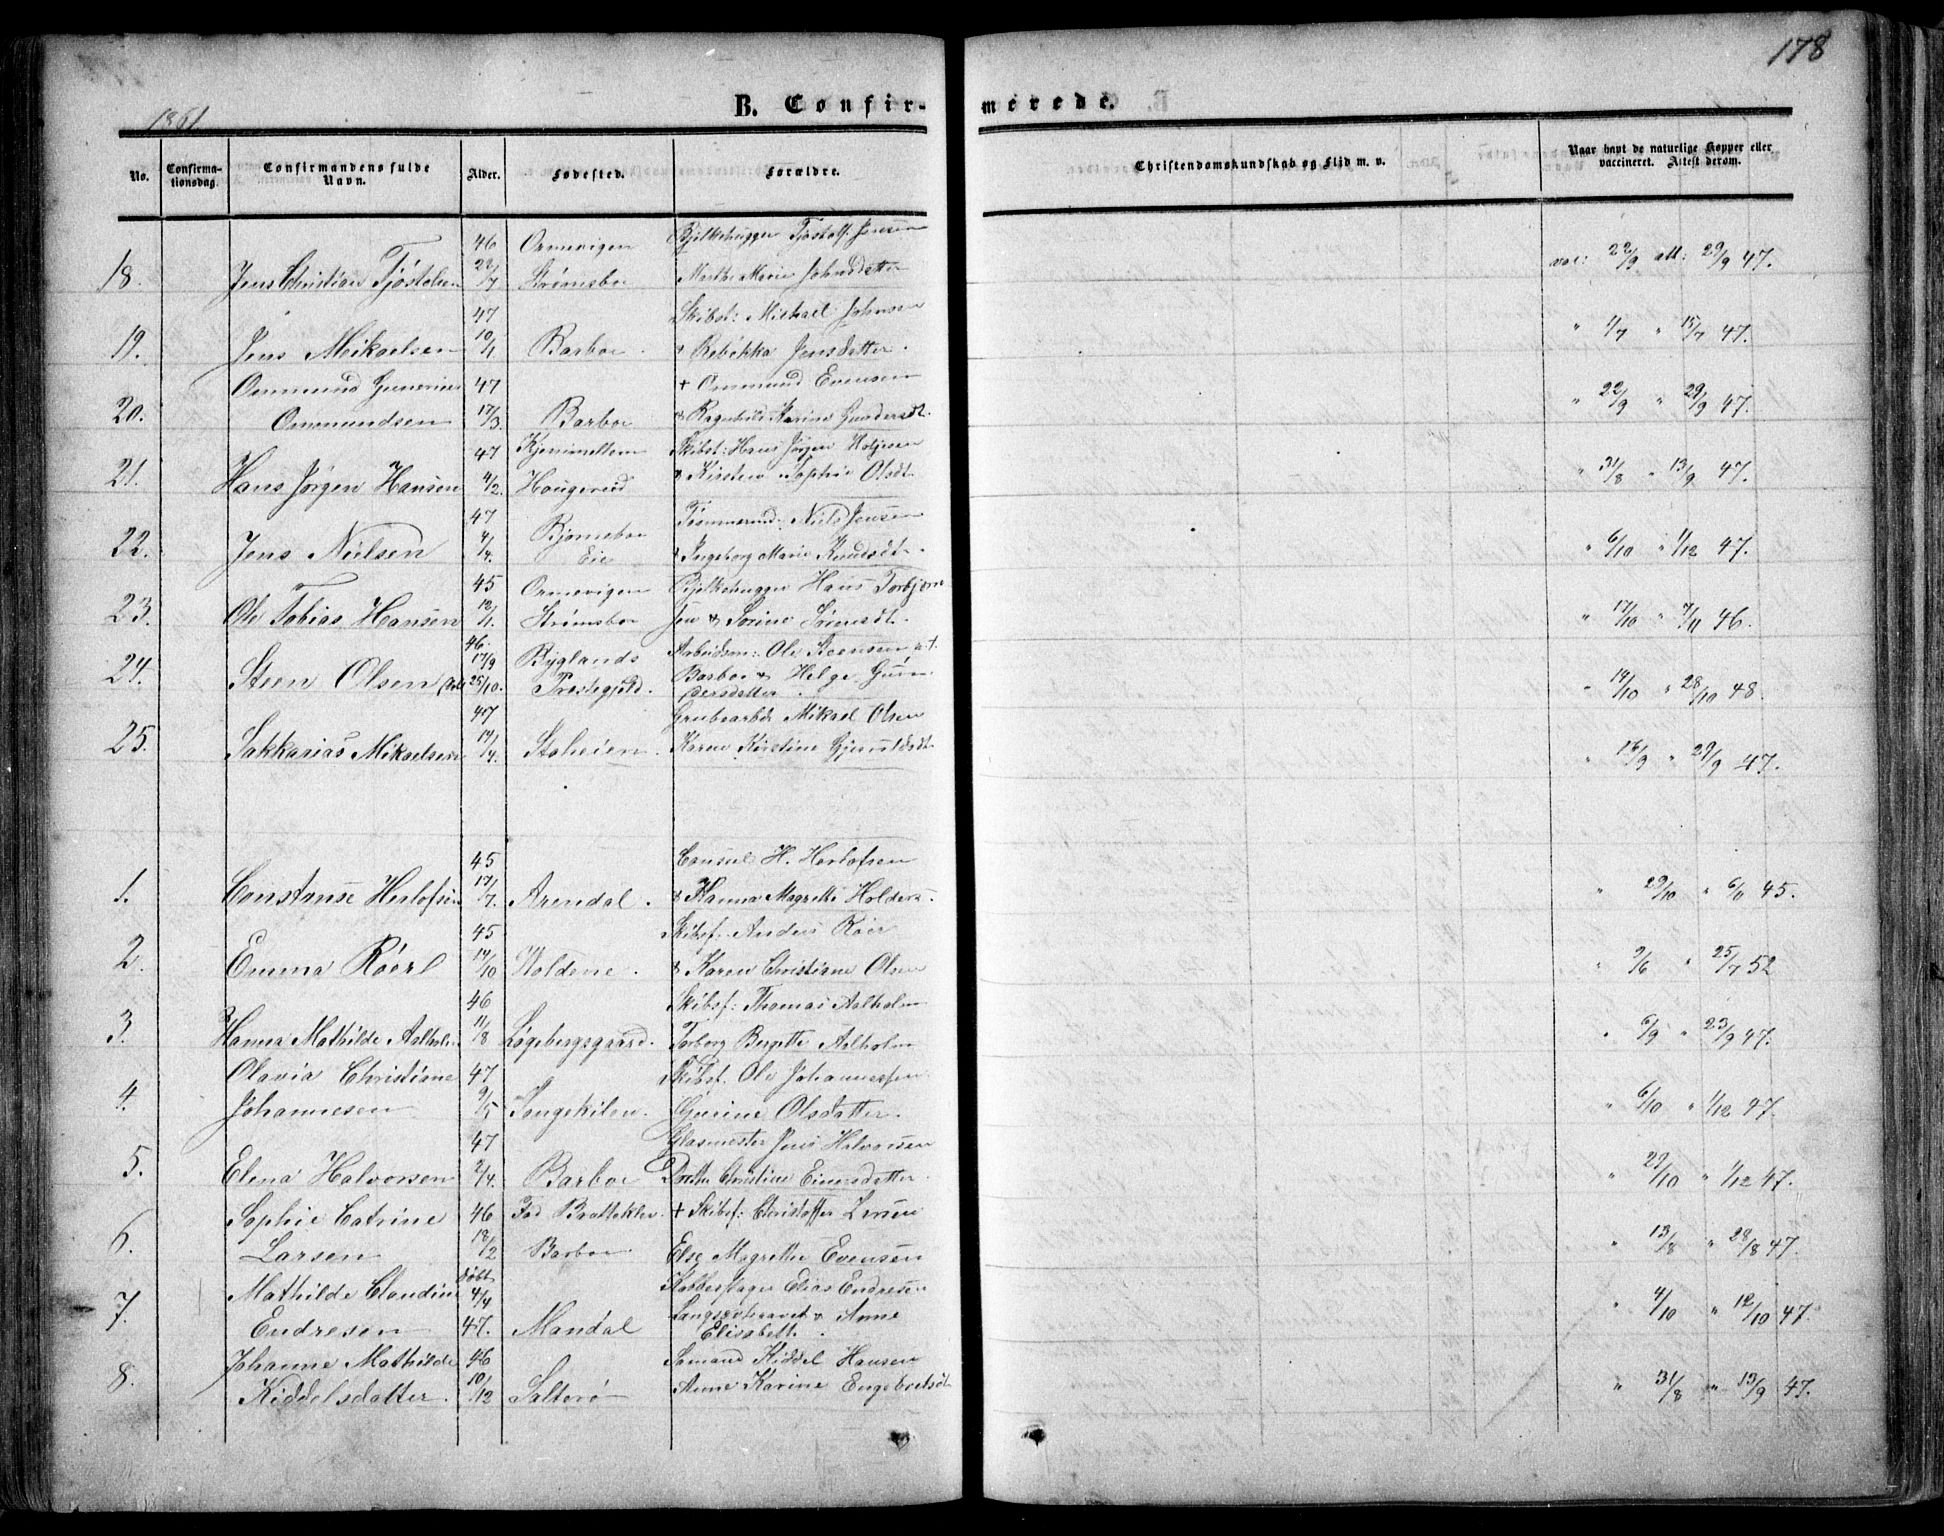 178
1861.
B. Confir-
merede.
No.
Confirma-
tionsdag.
Confirmandens fulde
Navn.
Alder.
Fødested.
Forældre.
Christendomskundskab og Flid m. v.
Naar havt de naturlige Kopper eller
vaccineret. Attest derom.
46 Ormevigen Bjelkehugger Tjostolf Jensen
18. Jens Christian Tjøstolsen 22/7 Strømsboe Marthe Marie Johnsdatter vac: 22/9 att: 29/9 47.
47 Skibst: Michael Johnsen
19. Jens Mikaelsen 10/4 Barboe. & Rebekka Jensdatter. " 1/7 " 15/7 47.
Ommund Gunerius 47 + Ommund Evensen
20. Ommundsen 17/3 Barboe & Ragnhild Karine Gundersdt. " 22/9 " 29/9 47.
47 Skibst: Hans Jørgen
21. Hans Jørgen Hansen 4/2 Hougerud & Kirsten Sophie Olsdt. " 31/8 " 13/9 47.
47 Bjørneboe Tømmermd. Niels Jensen
22. Jens Nielsen 4/4. Eie & Ingeborg Marie Knudsdt. " 6/10 " 1/12 47.
45 Ormevigen Bjelkehugger Hans Torbjørn
23. Ole Tobias Hansen 12/1. Strømsboe sen & Sorine Sørensdt. " 17/10 " 7/11 46.
46. 17/9 Byglands Arbeidsm: Ole Steensen
24. Steen Olsen 25/10. Præstegjeld. Barboe & Helge Gun
dersdatter " 14/10 " 28/10 48.
47 Grubearbdr Mikael Olsen
25. Sakkarias Mikaelsen 19/4. Stoheien. Karen Kirstine " 16/9 " 29/9 47.
45 Consul H. Herlofsen
1. Constanse Herlofsen 17/7. Arendal. & Hanna Magrethe " 29/10 " 6/11 45.
45 Skibsf. Anders Röer
2. Emma Röerl 14/10 Woldene. & Karen Christiane Olsen " 9/6 " 25/7 52
46 Skibsf: Thomas Aalholm
3. Hanna Mathilde Aalholm 11/8 Løgebergsgaard. Torborg Bergette Aalholm " 6/9 " 23/9 47.
Olavia Christiane 47 Skibsf. Ole Johannessen
4. Johannesen 9/5 Songekilen. Gurine Olsdatter. " 6/10 " 1/12 47.
47 Glasmester Jens Halvorsen
5. Elena Halvorsen 2/4. Barboe Dorthe Christine Einersdatter. " 29/10 " 1/12 47.
Sophie Catrine 46 Bratteklev + Skibsf: Christoffer Larsen
6. Larsen 18/2 Barboe. Else Magrethe Evensen " 13/8 " 28/8 47.
Mathilde Claudine døbt 4/4 Elias Endresen
7. Endresen 47. Mandal & Anne
Elisabeth. " 4/10 " 12/10 47.
Johanne Mathilde 46 Sømand Kiddel Hansen
8. Kiddelsdatter. 10/12 Salterø Anne Karine Engebretsdt " 31/8 " 13/9 47.